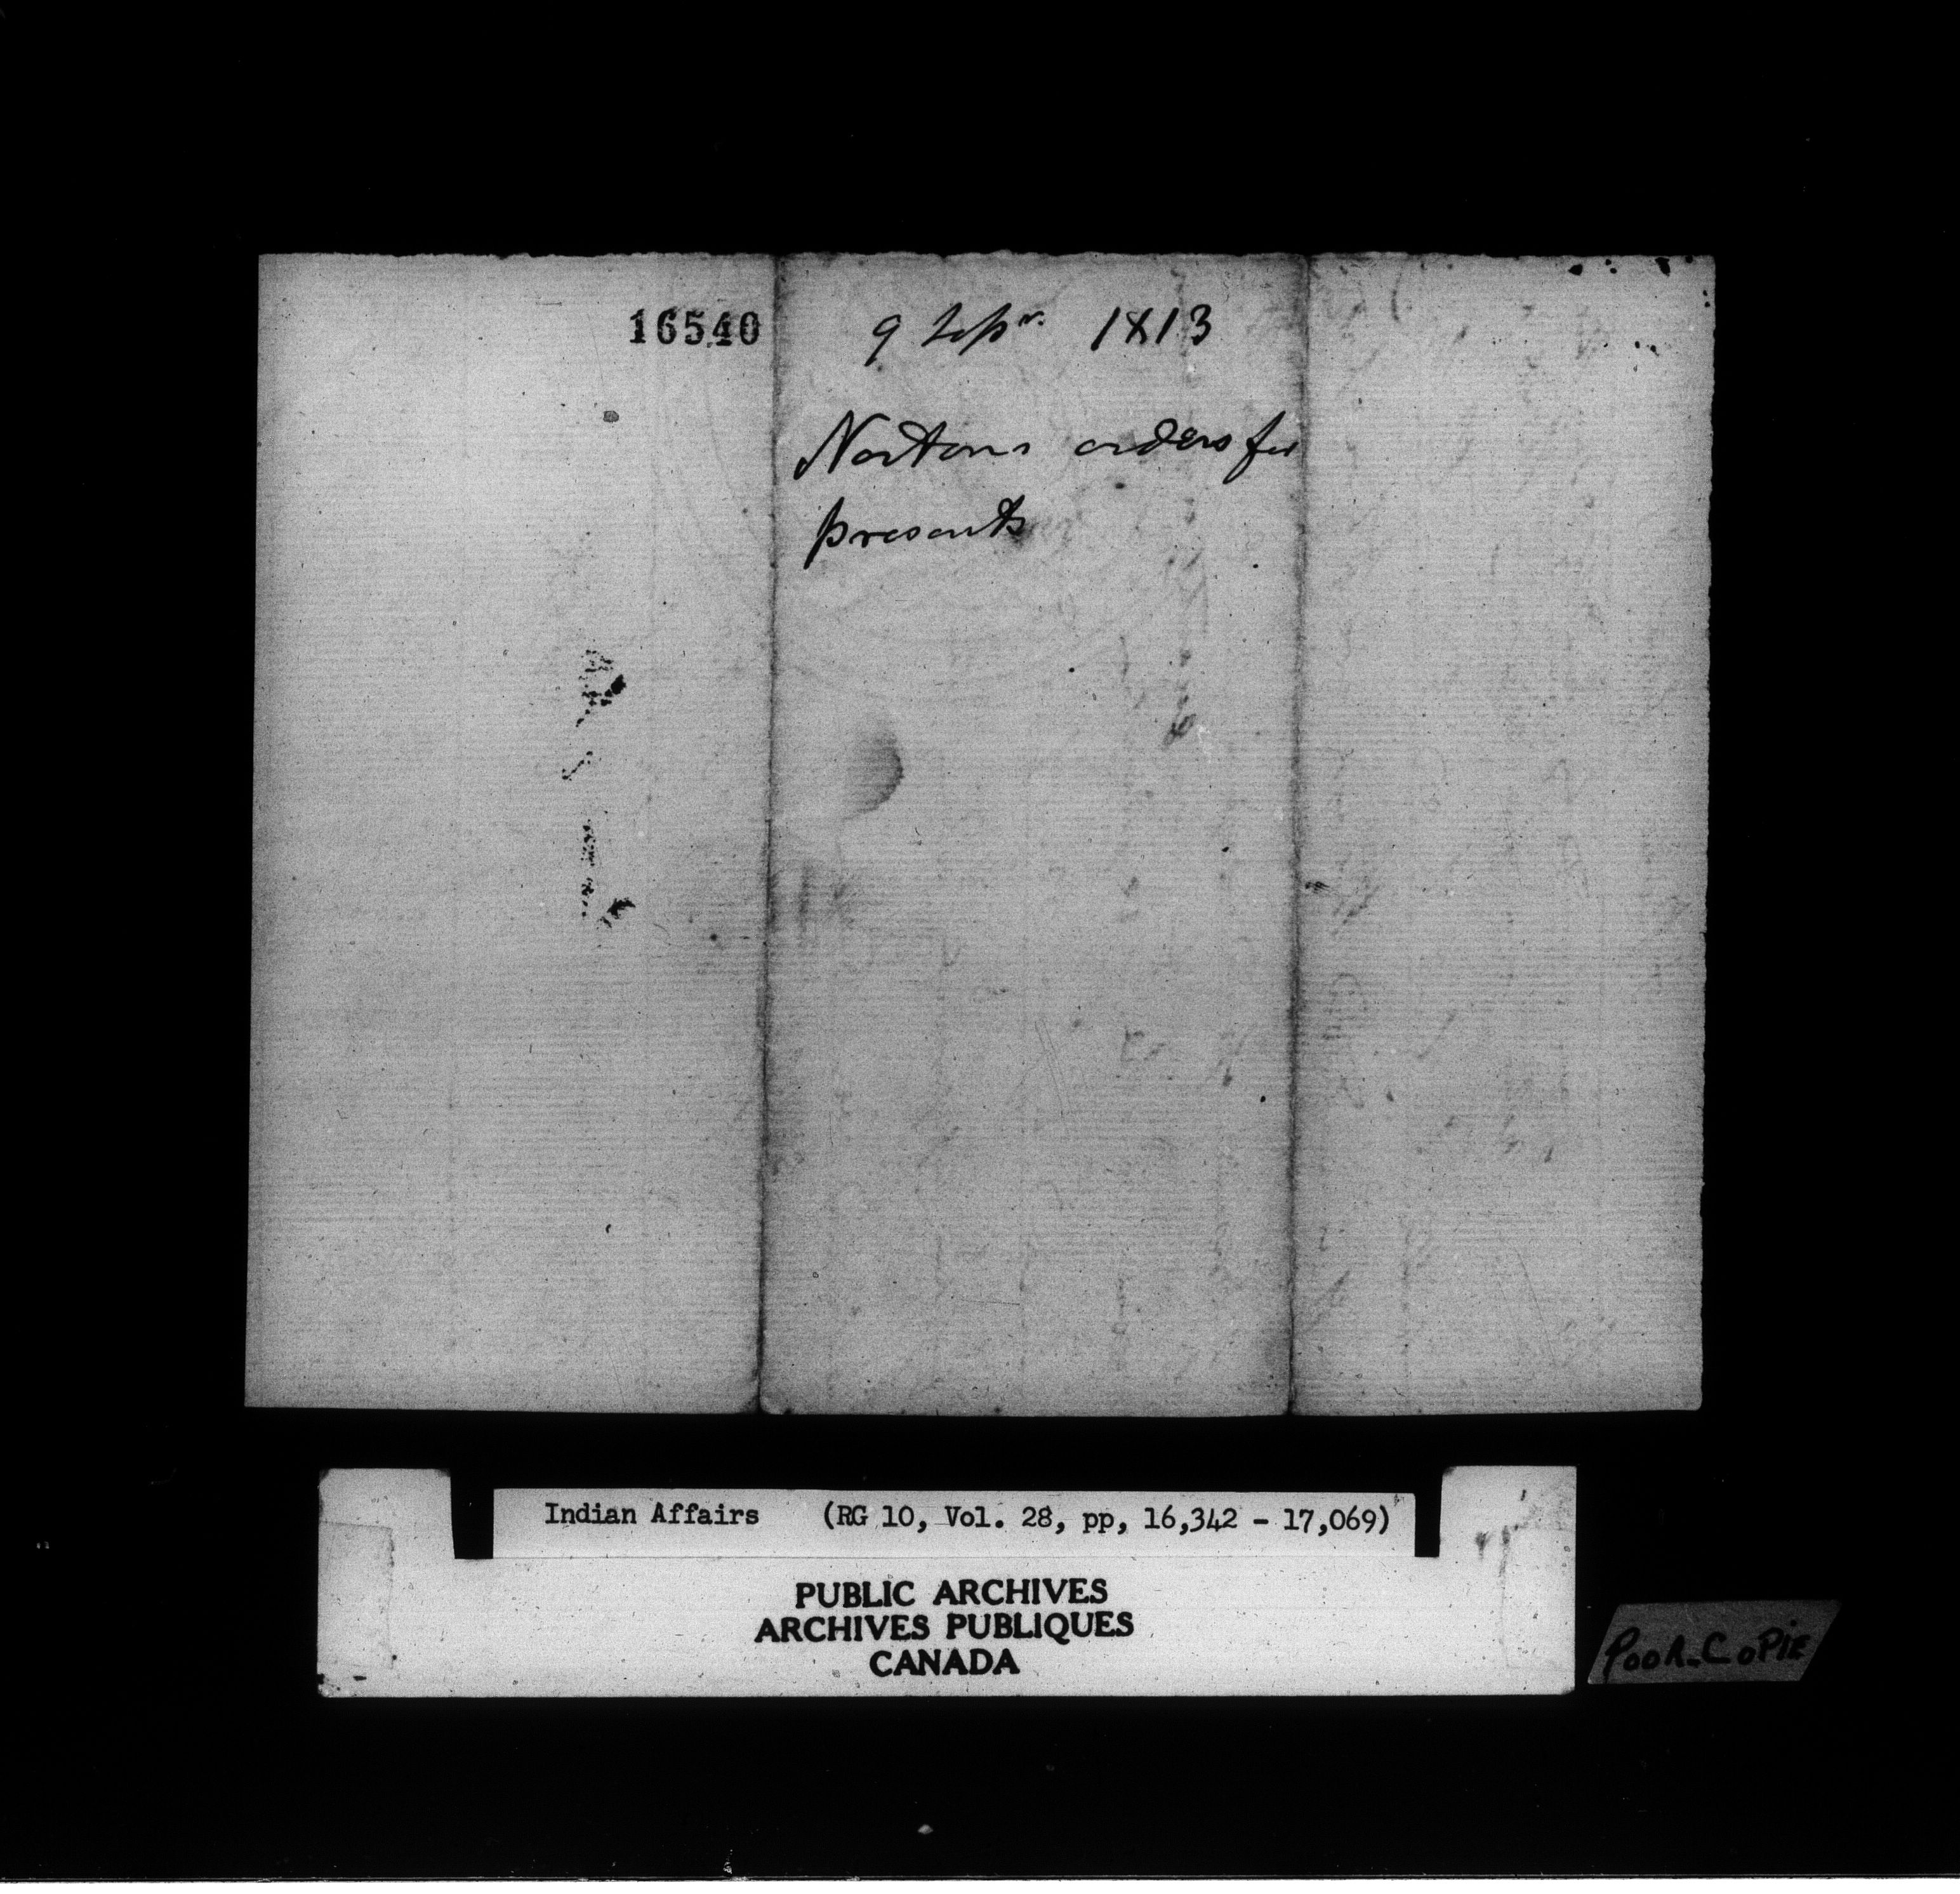 16540
9 Sepr. 1813
Nortons orders for
presents
Indian Affairs (RG 10, Vol. 28, pp, 16,342 - 17,069)
PUBLIC ARCHIVES
ARCHIVES PUBLIQUES
CANADA
POOR COPIE